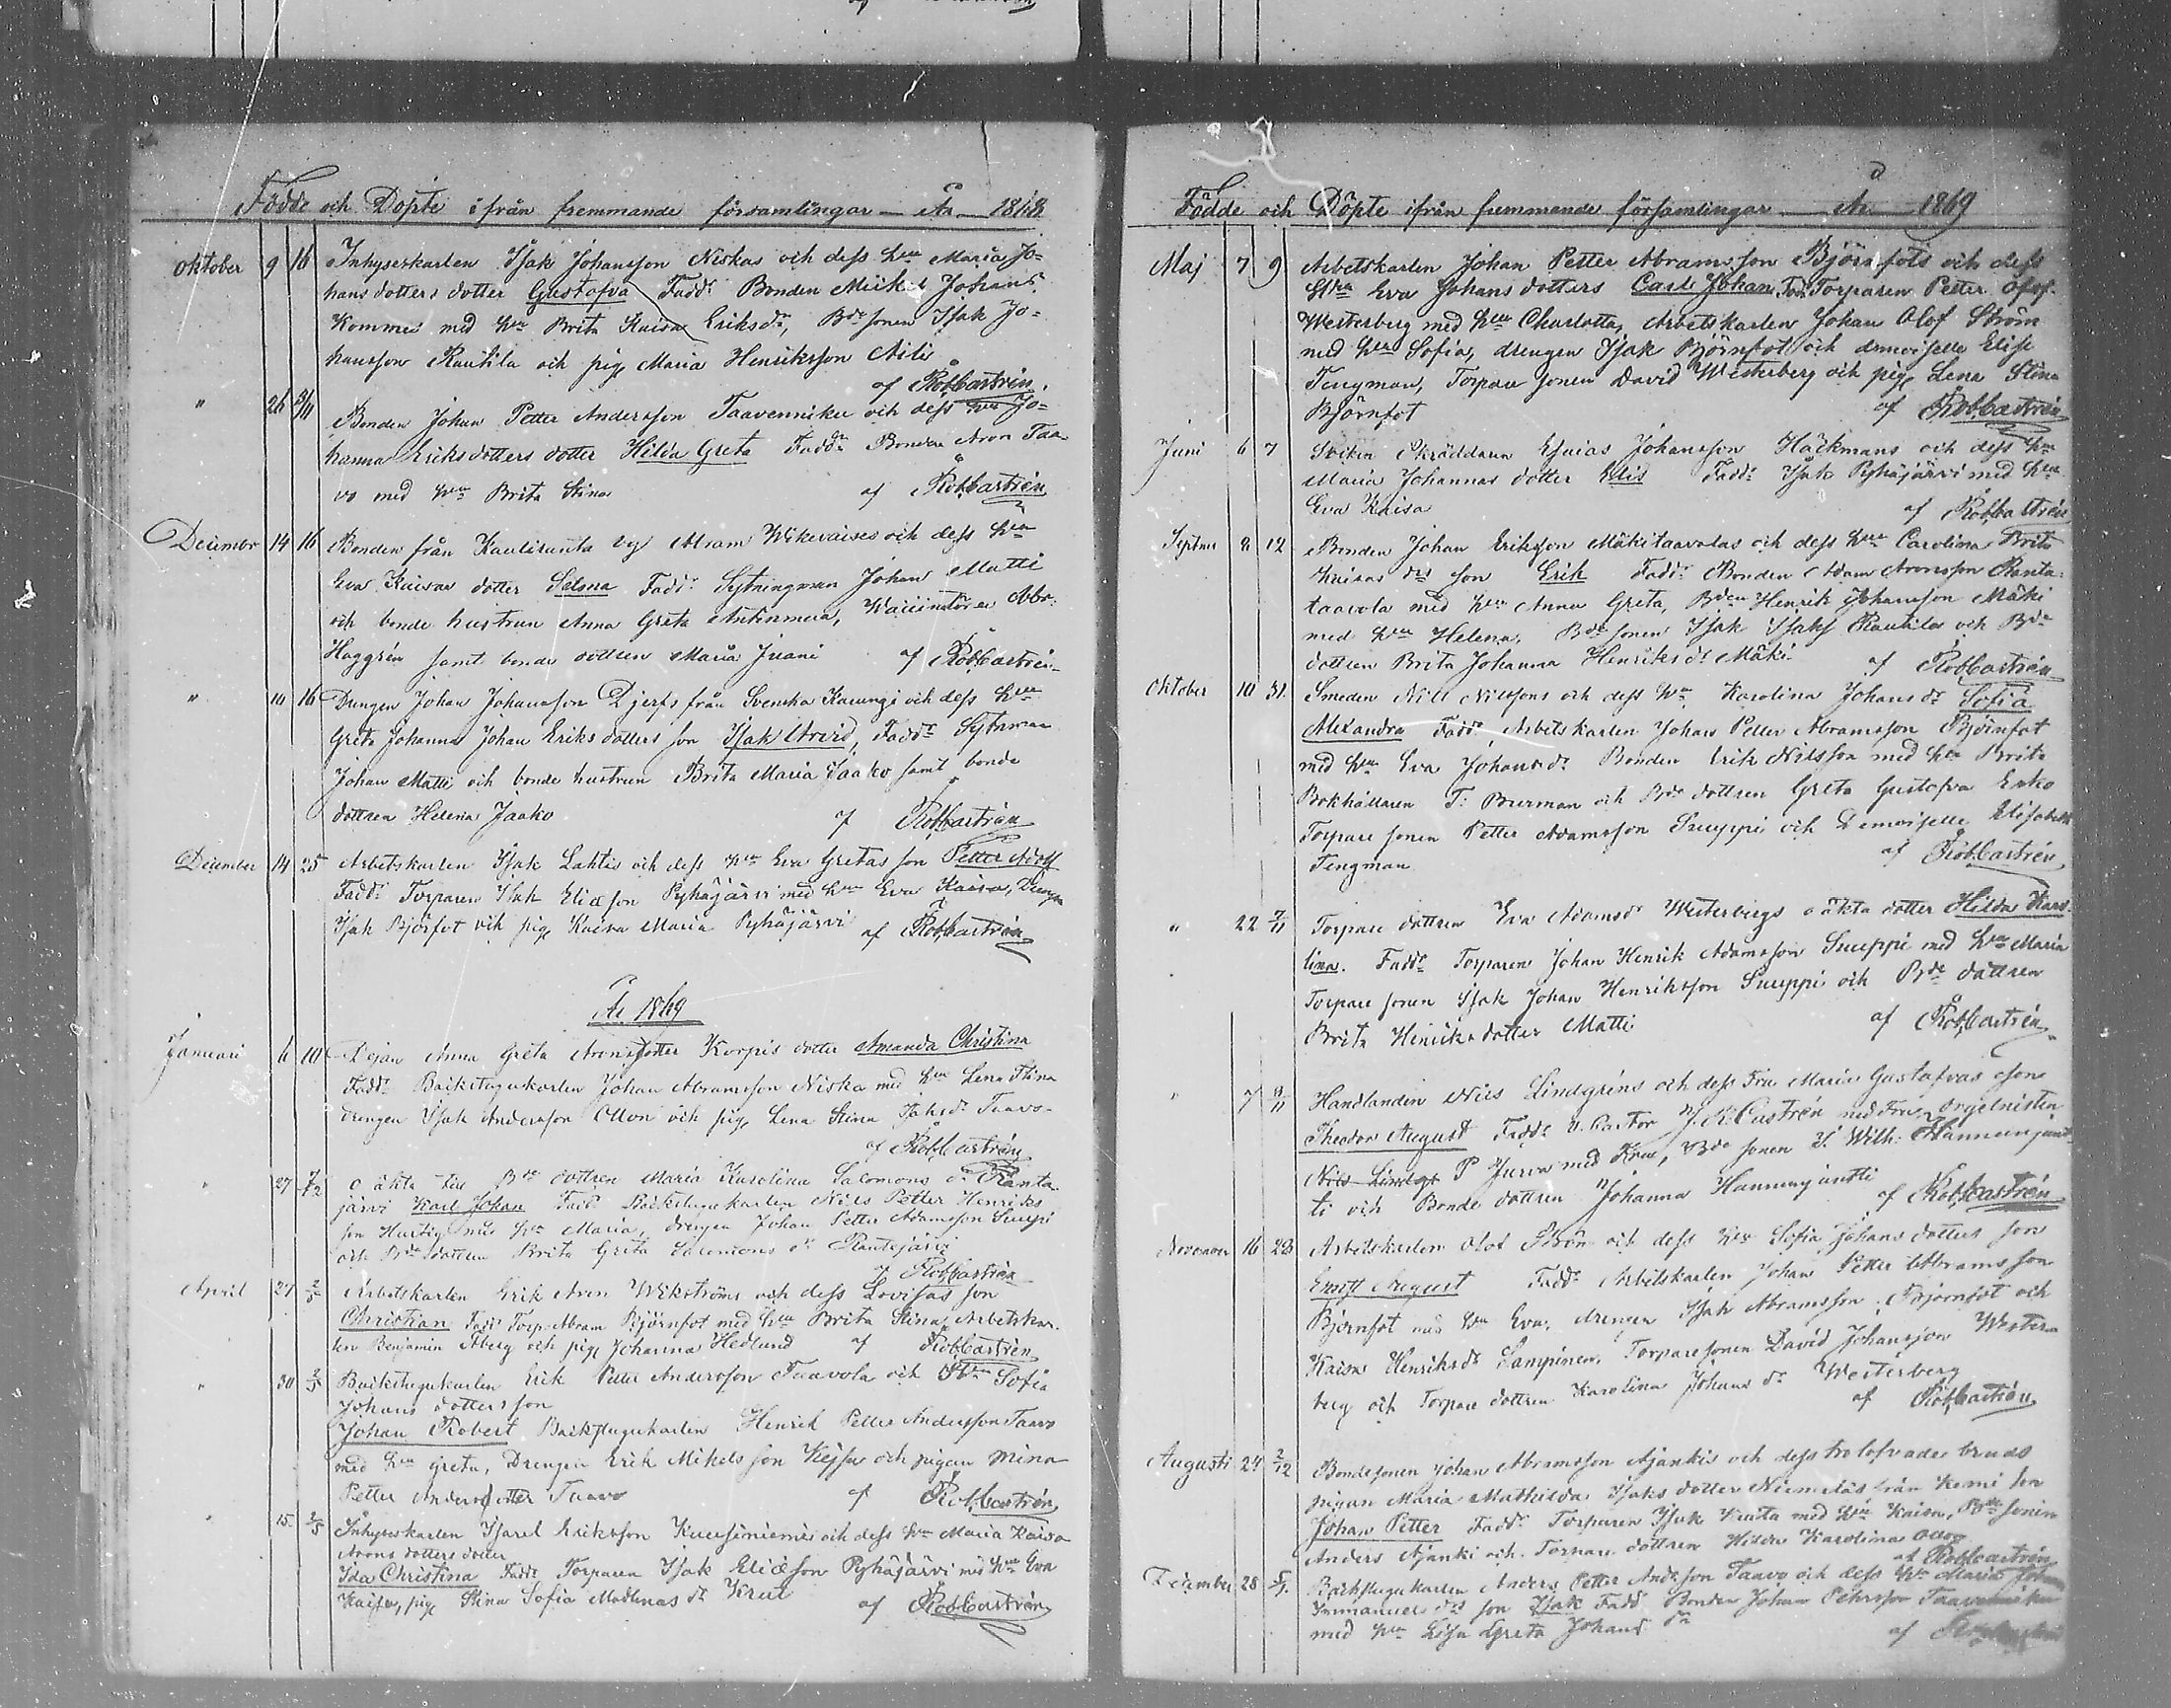 Födde och Döpte ifrån fremmande församlingar — År — 1868
Oktober 9 16 Inhyseskarlen Isak Johansson Niskas och dess hru Maria Jo-
hans dotters dotter Gustafva Fadd: Bonden Mickel Johans:
Kommes med hru Brita Kaisa Eriksdr, Bde sonen Isak Jo-
hansson Rautila och pig Maria Henriksson Aili
af Rob. Castrén.
" 26 Bonden Johan Petter Andersson Taavenniku och dess hru Jo-
hanna Eriksdotters dotter Hilda Greta Fadd: Bonden Aron Taa-
vo med hru Brita Stina af Rob. Castrén
December 14 16 Bonden från Kauliranta by Abram Wikevaises och dess hru
Eva Kaisas dotter Selma Fadd: Sytningman Johan Matti
och bonde hustrun Anna Greta Antinmua, Abr:
Häggrén samt bonde dottren Maria Juani af Rob. Castrén
" 10 16 Drengen Johan Johansson Djerfs från Svenska Karungi och dess hru
Greta Johanna Johan Eriks dotters son Isak Arvid, Fadd: Sytnman
Johan Matti och bonde hustrun Brita Maria Jaako samt bonde
dottren Helena Jaako af Rob. Castrén
December 14 25 Arbetskarlen Isak Lahtis och dess hru Eva Gretas son Petter Adolf
Fadd: Torparen Isak Eliæson Pyhäjärvi med hru Eva Kaisa, Drengen
Isak Björfot och pig Kaisa Maria Pyhäjärvi af Rob. Castrén
År 1869
Januari 6 10 Dejan Anna Greta Aronsdotter Korpis dotter Amanda Christina
Fadd: Backstugukarlen Johan Abramsson Niska med hru Lena Stina
drengen Isak Andersson Ollon och pig Lena Stina Isaksdr Taavo-
af Rob. Castrén
" 27 7/2 o äkta till Bde dottren Maria Karolina Salomons dr Ranta-
järvi Karl Johan Fadd: Backstugukarlen Nils Petter Henriks
son Hurtig med hru Maria, drengen Johan Petter Adamsson Snuppi
och Bde dottren Brita Greta Salomons dr Rantajärvi
af Rob. Castrén
April 27 2/5 Arbetskarlen Erik Aron Wikströms och dess Lovisas son
Christian Fadd: Torp. Abram Björnfot med hru Brita Stina, Arbetskar-
len Benjamin Åberg och pig Johanna Hedlund af Rob. Castrén
" 30 2/5 Backstugukarlen Erik Petter Andersson Taavola och Hru Sofia
Johans dotters son
Johan Robert Backstugukarlen Henrik Petter Andersson Taavo
med hru Greta, Drengen Erik Mikelsson Kejsu och pigan Mina
Petter Andersdotter Taavo af Rob. Castrén
" 15. 2/5 Inhyseskarlen Isarel Eriksson och dess hru Maria Kaisa
Arons dotters dotter
Ida Christina Fadd: Torparen Isak Eliæson Pyhäjärvi med hru Eva
Kaisa, pig Stina Sofia dr af Rob. Castrén
Födde och Döpte ifrån fremmande församlingar — År — 1869
Maj 7 9 Arbetskarlen Johan Petter Abramsson Björnfots och dess
hru Eva Johans dotters Carl Johan Fad. Torparen Petter Olof
Westerberg med hru Charlotta, Arbetskarlen Johan Olof Ström
med hru Sofia, drengen Isak Björnfot och demoiselle Elise
Tengman, Torpare sonen David Westerberg och pig Lena Stina
Björnfot af Rob. Castrén
Juni 6 7 Skräddaren Esaias Johansson Häckmans och dess hru
Maria Johannas dotter Elis Fadd: Isak Pyhäjärvi med hru
Eva Kaisa af Rob. Castrén
Septmr 8 12 Bonden Johan Eriksson Mäkitaavolas och dess hru Carolina Brita
Kaisas drs son Erik Fadd: Bonden Adam Aronsson Ranta-
taavola med hru Anna Greta, Bden Henrik Johansson Mäki
med hru Helena, Bde sonen Isak Isaks Rautila och Bde
dottren Brita Johanna Henriks dr Mäki af Rob. Castrén
Oktober 10 31. Smeden Nils Nilssons och dess hru Karolina Johans dr Sofia
Alexandra Fadd: Arbetskarlen Johan Petter Abramsson Björnfot
med hru Eva Johans dr Bonden Erik Nilsson med hru Brita
Bokhållaren T: Burman och Bde dottren Greta Gustafva Erko
Torpare sonen Petter Adamsson Snuppi och Demoiselle Elisabeth
Tengman af Rob. Castrén
" 22 7/11 Torpare dottren Eva Adamsdr Westerbergs o äkta dotter Hilda Karo-
lina. Fadd: Torparen Johan Henrik Adamsson Snuppi med hru Maria
Torpare sonen Isak Johan Henriksson Snuppi och Bde dottren
Brita Henriksdotter Matti af Rob. Castrén
" 7 8/11 Handlanden Nils Lindgréns och dess Fru Maria Gustafvas son
Theodor August Fadd: V. Pastor J. R. Castrén med Fru, Orgelnisten
Nils Lindgr P Jurva med Fru, Bde sonen I. Wilh: Hannunjunt-
ti och Bonde dottren Johanna Hannunjuntti af Rob. Castrén
November 16 28 Arbetskarlen Olof Ström och dess hru Sofia Johans dotters son
Ernst August Fadd: Arbetskarlen Johan Petter Abramsson
Björnfot med hru Eva. drengen Isak Abramsson Björnfot och
Kaisa Henriksdr Lampinen, Torpare sonen David Johansson Wester-
berg och Torpare dottren Karolina Johans dr Westerberg
af Rob. Castrén
Augusti 24 2/12 Bondesonen Johan Abramsson Ajankis och dess trolofvade bruds
pigan Maria Mathilda Isaks dotter Niemeläs från Kemi son
Johan Petter Fadd: Torparen Isak Krata med hru Kaisa, Bde sonen
Anders Ajanki och Torpare dottren Hilda Karolina
af Rob. Castrén
December 28 Backstugukarlen Anders Petter Andsson Taavo och dess hru Maria
Immanuels drs son Isak Fadd Bonden Johan Pehrsson Taavaniku
med hru Lisa Greta Johans dr af